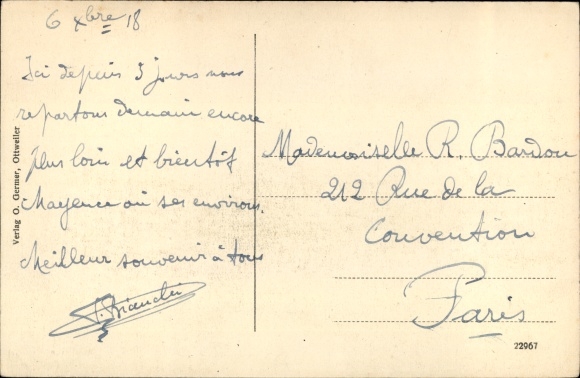 6 Xbre 18
Ici depuis 3 jours nous
repartons demain encore
plus loin et bientôt
Mayence où ses environs.
Meilleur souvenir à tous
Bianchi
Mademoiselle R. Bardou
212 Rue de la
Convention
Paris
Verlag O. Germer, Ottweiler
22967